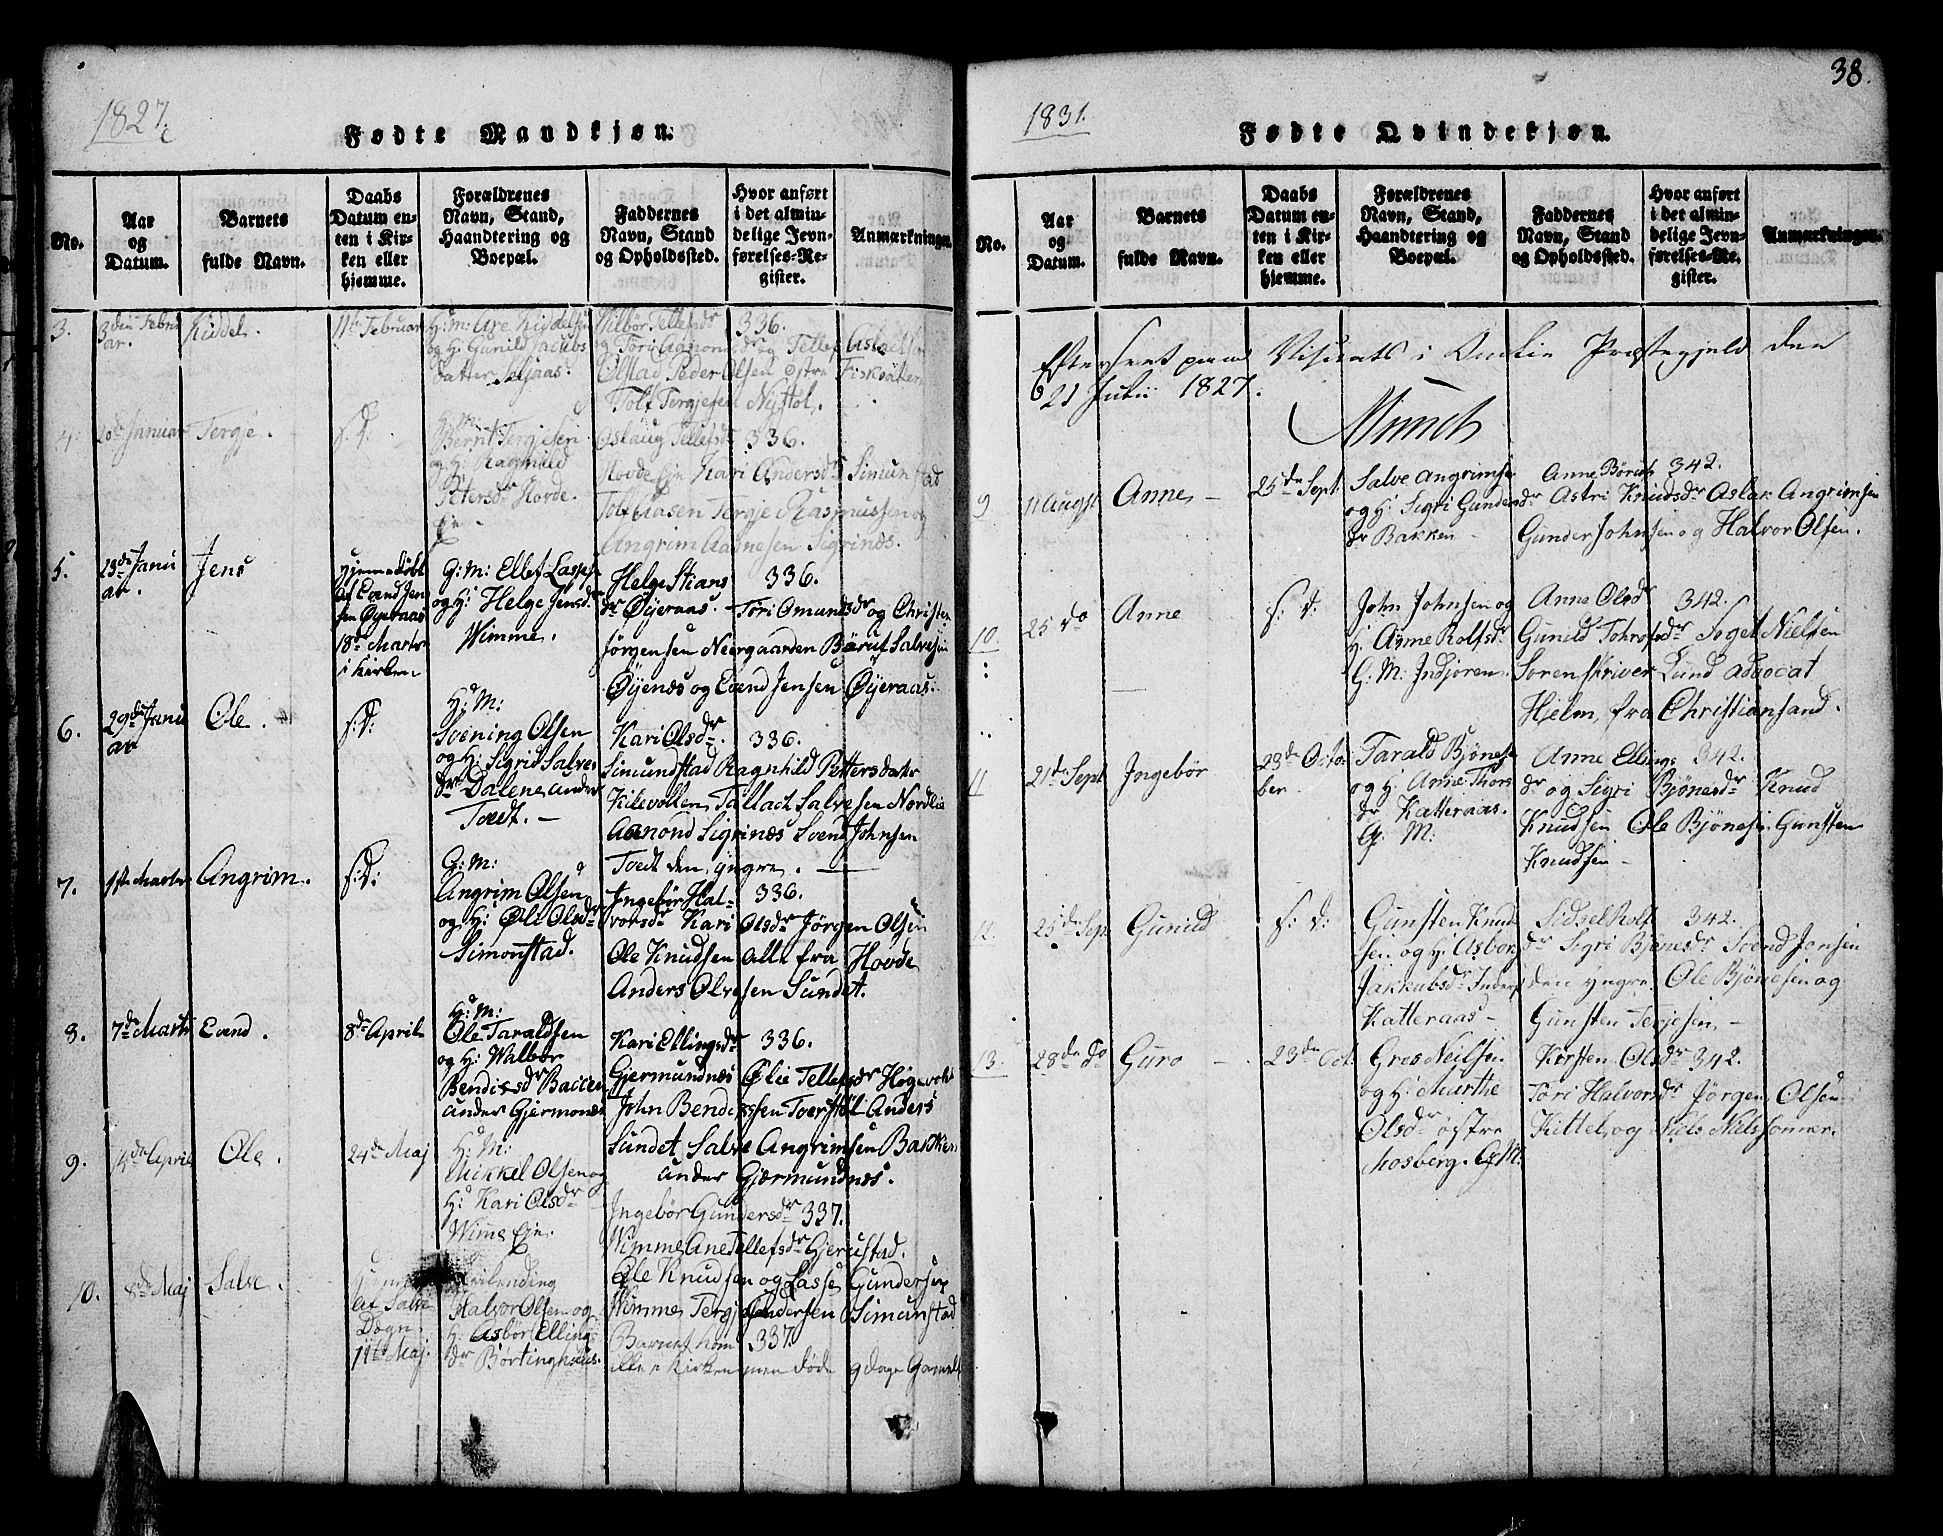 1827
Fødte Mandkjøn.
No.
Aar
og
Datum.
Barnets
fulde Navn.
Daabs
Datum en-
ten i Kir-
ken eller
hjemme.
Forældrenes
Navn, Stand,
Haandtering og
Boepæl.
Faddernes
Navn, Stand
og Opholdssted.
Hvor anført
i det almin-
delige Jevn-
førelses-Re-
gister.
Anmærkninger.
3.
Kiddel.
11te Februar
H: M: Are Kiddelsen
og H: Gunild
datter
Wilbør Tellefsdr 336.
og Tori
Olstad Peder Olsen østre
Tolf Tergiesen Nystøl.
4.
20de Januar
Tergie.
f. d.
H. M.
Bernt Tergiesen
og H:
Petersdr Hovde.
Eje.
Aslaug Tellefsdr 336.
Hovde Eje Kari Andersdr Simunstad
Tolf Aasen Tergie Rasmussen og
Angrim Sigrinæs.
5.
23de Janu
ar.
Jens
Hjemmedøbt
af Evend Jen
sen Øyeraas
18de Marts
i kirken
G: M: Ellef Lassesen
og H: Helge Jensdr
Wimme.
Helge Stians 336.
dr Øyeraas. Tori Omundsdr og Christen
Jørgensen Neergaarden Børut Salvesen
Øyenæs og Evend Jensen Øyeraas.
6.
29de Janu
ar
Ole.
f: d:
H: M:
Svening Olsen
og H: Sigrid Salves
dr Dalene under
Toedt. —
Kari Olsdr. 336.
Simundstad Ragnhild Pettersdatter
Kilevolten Tallach Salvesen Nordlie
Aanond Sigrinæs Svend Johnsen
Toedt den yngre. —
7.
1ste Marts
Angrim.
f: d:
G: M:
Angrim Olsen
og H: Øli Olsdr
Simonstad.
Ingebør Hal- 336.
vorsdr Kari Olsdr Jørgen Olsen
Ole Knudsen Alle fra Hovde
Anders Olvesen Sundet.
8.
7de Marts
Evend.
8de April
H: M:
Ole Taraldsen
og H: Wilbor
Bendixdr Bakken
under Gjermones
Kari Ellingsdr 336.
Gjermundnes Ølie Tellefsdr Høgevolt
John Bendixsen Toerstøl Anders
Sundet Salve Angrimsen Bakken
under Gjærmundnæs.
9.
14de April
Ole.
24de Maj
H: M:
Mikkel Olsen og
H: Kari Olsdr
Wime Eje.
Ingebør Gundersdr 337.
Wimme Ane Tellefsdr Gjerustad.
Ole Knudsen og Lasse Gundersen
Wimme, Tergie Andersen Simunstad
10.
8de Maj
Salve.
af Salve
Dogn.
11te Maj.
Halvor Olsen og
H. Asbør Ellings
dr Børtinghuus.
Barnet kom 337.
ikke i kirken men døde 9 dage Gammel
38.
1831.
Fødte Qvindekjøn.
No.
Aar
og
Datum.
Barnets
fulde Navn.
Daabs
Datum en-
ten i Kir-
ken eller
hjemme.
Forældrenes
Navn, Stand,
Haandtering og
Boepæl.
Faddernes
Navn, Stand
og Opholdssted.
Hvor anført
i det almin-
delige Jevn-
førelses-Re-
gister.
Anmærkninger.
Efterseet paa Visitats i Omlie Præstegjeld den
21 Julii 1827.
Munch
9
11 August
Anne —
25de Sept.
Salve Angrimsen
og H: Sigri Gunders
dr Bakken —
Anne Børuts 342.
dr Astri Knudsdr Aslak Angrimsen
Gunder Johnsen og Halvor Olsen.
10.
25 do
Anne
f: d:
John Johnsen og
H. Anne Rolfsdr
G: M: Indjoren
Anne Olsdr 342.
Gunild Tohrofsdr Foget Nielsen
Sorenskriver Lund advocat
Hjelm fra Christiansand.
11
21de Sept
Ingebør
23de Octo
ber.
Tarald Bjønesen
og H. Anne Thors
dr Katteraas.
G. M:
Anne Ellings 342.
dr og Sigri Bjønesdr Knud
Knudsen Ole Bjønesen Gunsten
Knudsen —
12.
25de Sep
Gunild
f: d:
Gunsten Knud
sen og H. Asborg
Jakkobsdr
Katteraas —
Sidsel Rolfs 342.
dr Sigri Bjønesdr Svend Jonsen
den yngre Ole Bjønesen og
Gunsten Terjesen —
13.
28de do
Guro —
23de Oct.
Gres Neilsen
og H: Marthe
Olsdr østre
Mosberg. G. M.
Kirsten Olsdr 342.
Tori Halvorsdr Jørgen Olsen
Kittel og Niels Nielssønner.